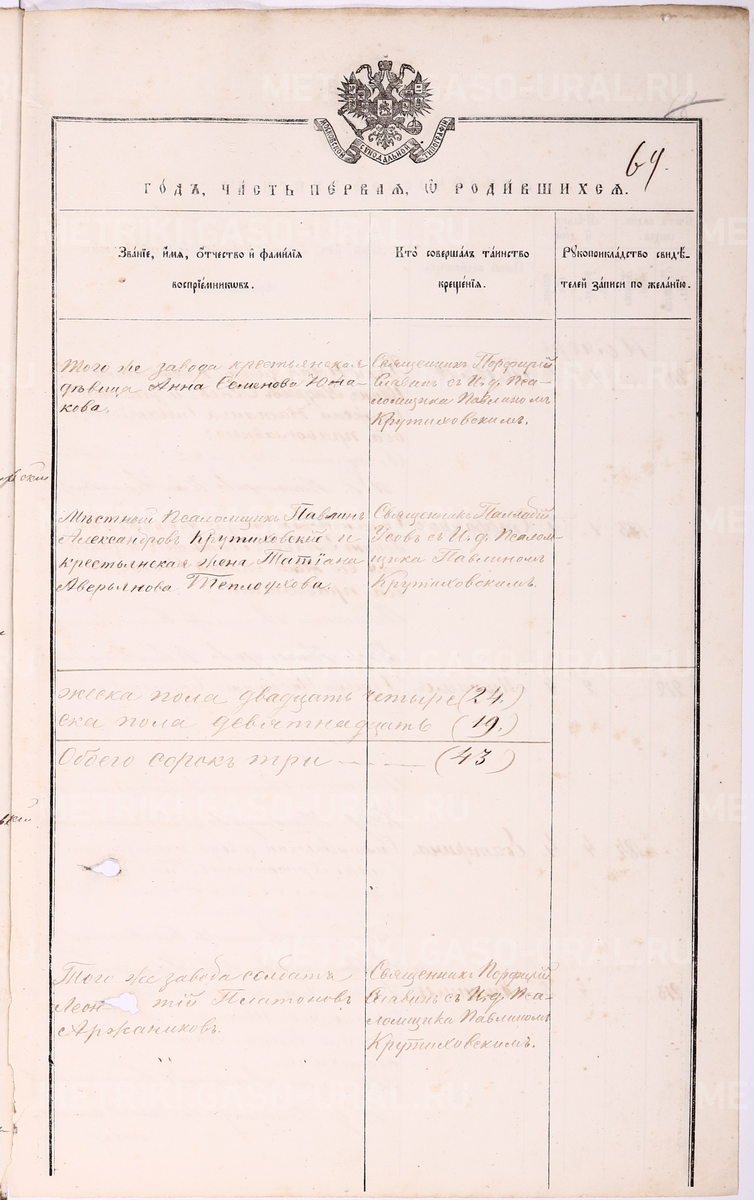 МОСКОВСКОЙ СУНОДАЛЬНОЙ ТИПОГРАФІИ
69.
ГО́ДЪ, ЧА́СТЬ ПЕ́РВАЯ, Ѡ РОДИ́ВШИХСЯ.
Зва́нїе, и҆́мя, ѻ҆́тчество и҆ фами́лїя
воспрїе́мникѡвъ.
Кто̀ соверша́лъ та́инство
креще́нїя.
Рꙋкоприкла́дство свидѣ́-
телей за́писи по жела́нїю.
Того же завода крестьянская
дѣвица Анна Семенова Южа-
кова.
Священникъ Порфирій
Славинъ съ И. д. Пса-
ломщика Павлиномъ
Крутиховскимъ.
Мѣстный Псаломщикъ Павлинъ
Александровъ Крутиховскій и
крестьянская жена Татіана
Аверьянова Теплоухова.
Священникъ Палладій
Усовъ съ И. д. Псалом-
щика Павлиномъ
Крутиховскимъ.
жеска пола двадцать четыре (24.)
ска пола девятнадцать (19.)
Обоего сорокъ три — — — (43)
Того же завода солдатъ
Леон тій Платоновъ
Аржаниковъ.
Священникъ Порфирій
Славинъ съ И. д. Пса-
ломщика Павлиномъ
Крутиховскимъ.
METRIKI.GASO-URAL.RU